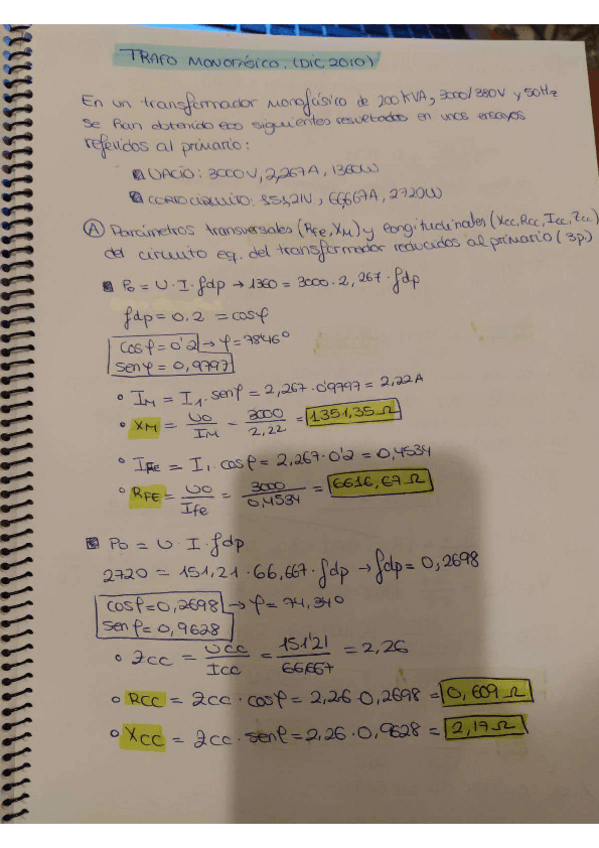 TRAFO MONOFÁSICO. (DIC 2010)
En un transformador monofásico de 200 KVA, 3000/380V y 50Hz
se han obtenido los siguientes resultados en unos ensayos
referidos al primario:
VACÍO: 3000V, 2,267A, 1360W
CORTOCIRCUITO: 151,21V, 66,667A, 2720W
A Parámetros transversales (RFe, XM) y longitudinales (Xcc, Rcc, Icc, Zcc)
del circuito eq. del transformador reducidos al primario (3p.)
Po = U · I · fdp → 1360 = 3000 · 2,267 · fdp
fdp = 0.2 = cosφ
cosφ = 0'2 → φ = 78'46º
senφ = 0,9797
IM = I1 · senφ = 2,267 · 0'9797 = 2,22A
XM = Uo/IM = 3000/2,22 = 1351,35 Ω
IFe = I1 · cosφ = 2,267 · 0'2 = 0,4534
RFE = Uo/Ife = 3000/0,4534 = 6616,67 Ω
Po = U · I · fdp
2720 = 151,21 · 66,667 · fdp → fdp = 0,2698
cosφ = 0,2698 → φ = 74,34º
senφ = 0,9628
Zcc = Ucc/Icc = 151'21/66,667 = 2,26
RCC = Zcc · cosφ = 2,26 · 0,2698 = 0,609 Ω
XCC = Zcc · senφ = 2,26 · 0,9628 = 2,17 Ω